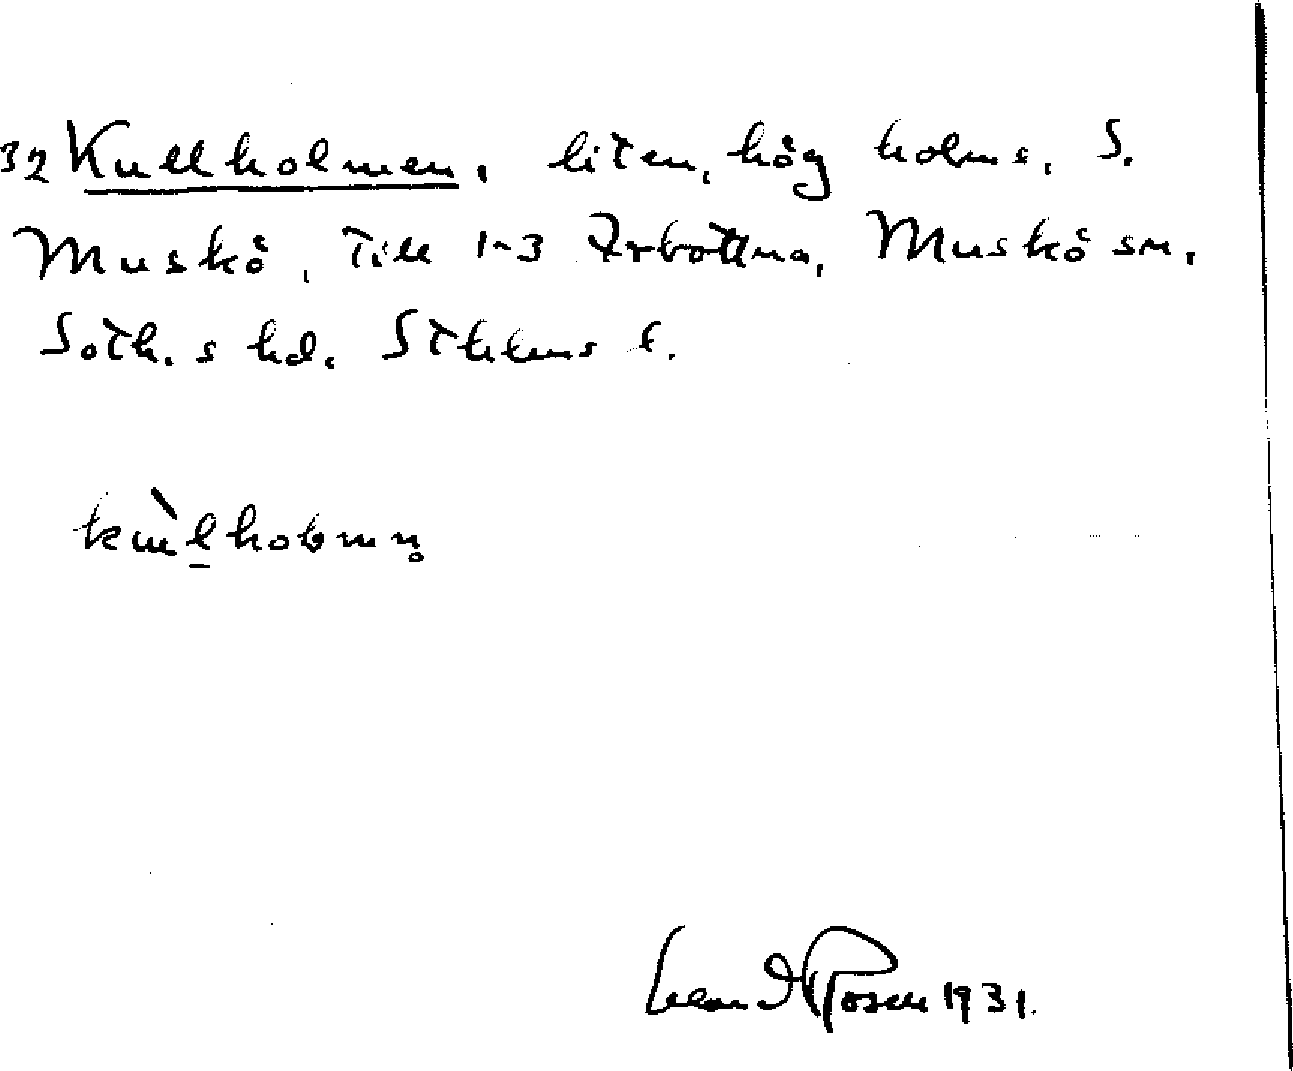 32 Kullholmen, liten, hög holme, S.
Muskö, till 1-3 Arbottna, Muskö sn.
Soth. s hd. Sthlms l.
kɯ̀l̠holmn̥
Rosell 1931.